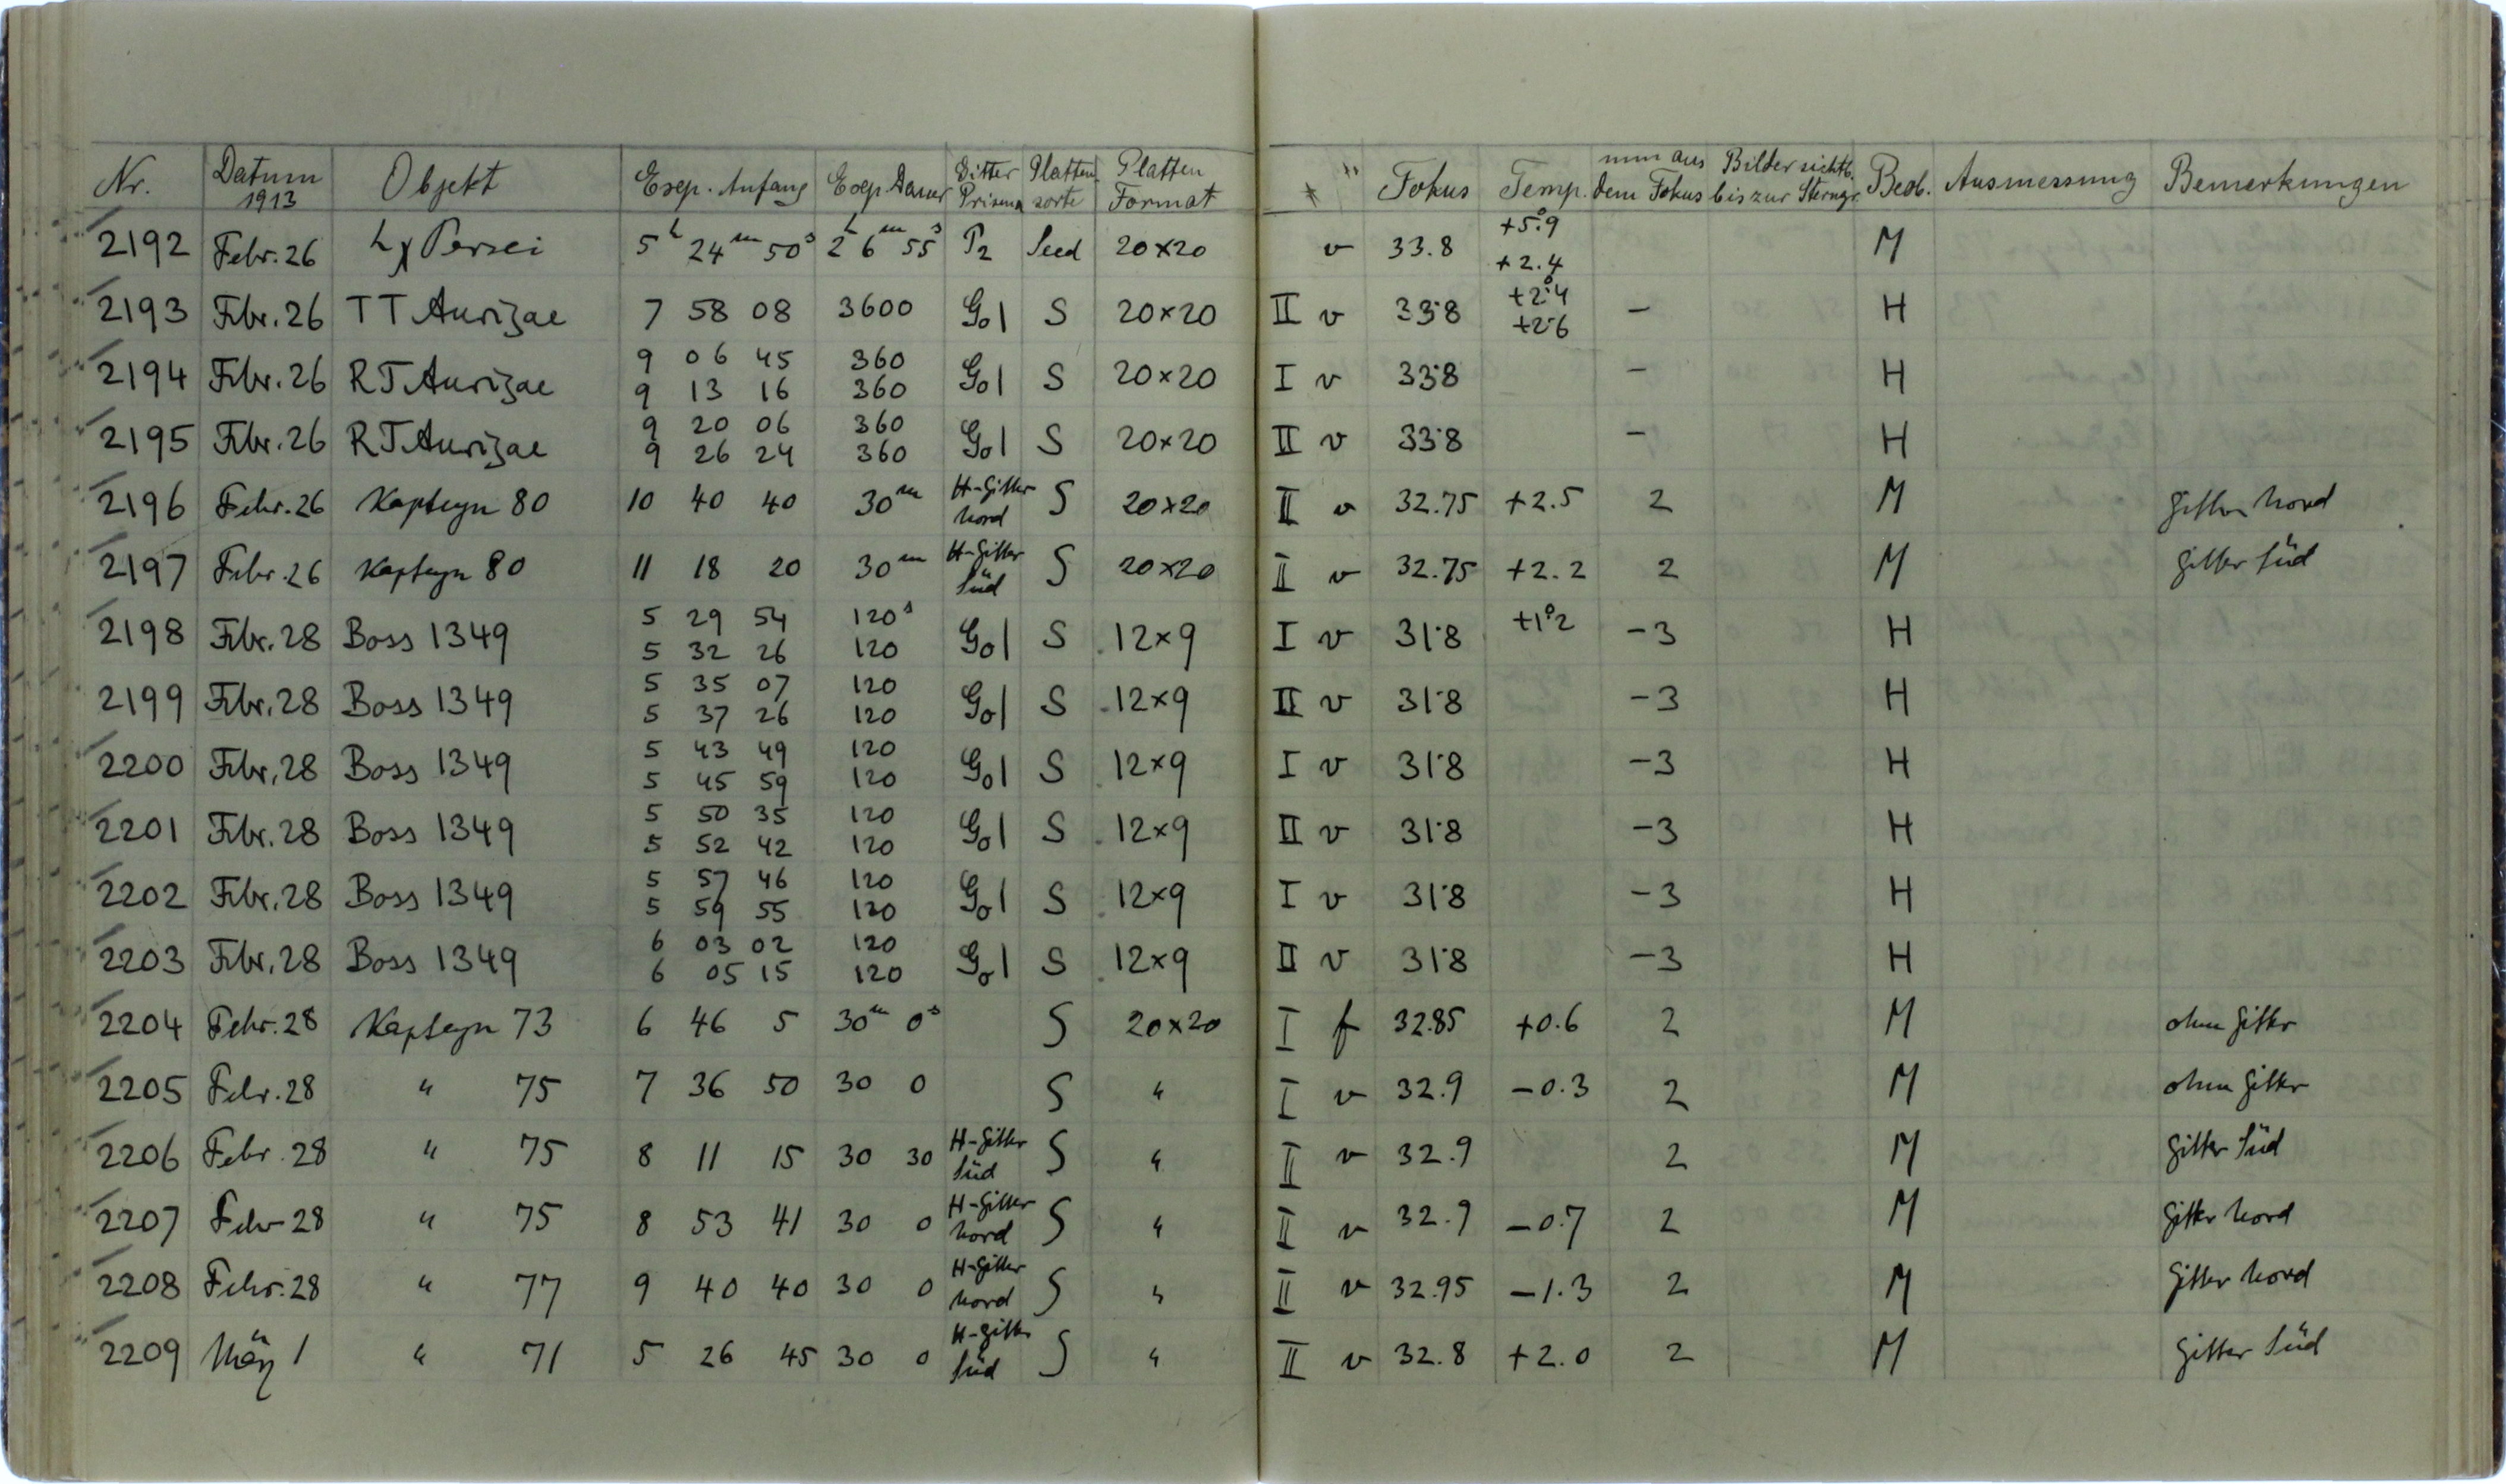 Nr. Datum 1913 Objekt Exp. Anfang Exp. Dauer Gitter Prisma Platten sorte Platten Format * " Fokus Temp. mm aus dem Fokus Bilder sichtb. bis zur Sterngr. Beob. Ausmessung Bemerkungen
2192 Febr. 26 h χ Persei 5h 24m 50s 2h 6m 55s P2 Seed 20×20 v 33.8 +5.°9 +2.4 M
2193 Febr. 26 TT Aurigae 7 58 08 3600 Go1 S 20×20 II v 33.8 +2.°4 +2.6 – H
2194 Febr. 26 RT Aurigae 9 06 45 360 Go1 S 20×20 I v 33.8 – H
9 13 16 360
2195 Febr. 26 RT Aurigae 9 20 06 360 Go1 S 20×20 II v 33.8 – H
9 26 24 360
2196 Febr. 26 Kapteyn 80 10 40 40 30m H-Gitter Nord S 20×20 II v 32.75 +2.5 2 M Gitter Nord
2197 Febr. 26 Kapteyn 80 11 18 20 30m H-Gitter Süd S 20×20 II v 32.75 +2.2 2 M Gitter Süd
2198 Febr. 28 Boss 1349 5 29 54 120s Go1 S 12×9 I v 31.8 +1°2 -3 H
5 32 26 120
2199 Febr. 28 Boss 1349 5 35 07 120 Go1 S 12×9 II v 31.8 -3 H
5 37 26 120
2200 Febr. 28 Boss 1349 5 43 49 120 Go1 S 12×9 I v 31.8 -3 H
5 45 59 120
2201 Febr. 28 Boss 1349 5 50 35 120 Go1 S 12×9 II v 31.8 -3 H
5 52 42 120
2202 Febr. 28 Boss 1349 5 57 46 120 Go1 S 12×9 I v 31.8 -3 H
5 59 55 120
2203 Febr. 28 Boss 1349 6 03 02 120 Go1 S 12×9 II v 31.8 -3 H
6 05 15 120
2204 Febr. 28 Kapteyn 73 6 46 5 30m 0s S 20×20 I f 32.85 +0.6 2 M ohne Gitter
2205 Febr. 28 " 75 7 36 50 30 0 S " I v 32.9 -0.3 2 M ohne Gitter
2206 Febr. 28 " 75 8 11 15 30 30 H-Gitter Süd S " II v 32.9 2 M Gitter Süd
2207 Febr 28 " 75 8 53 41 30 0 H-Gitter Nord S " II v 32.9 -0.7 2 M Gitter Nord
2208 Febr. 28 " 77 9 40 40 30 0 H-Gitter Nord S " II v 32.95 -1.3 2 M Gitter Nord
2209 März 1 " 71 5 26 45 30 0 H-Gitter Süd S " II v 32.8 +2.0 2 M Gitter Süd